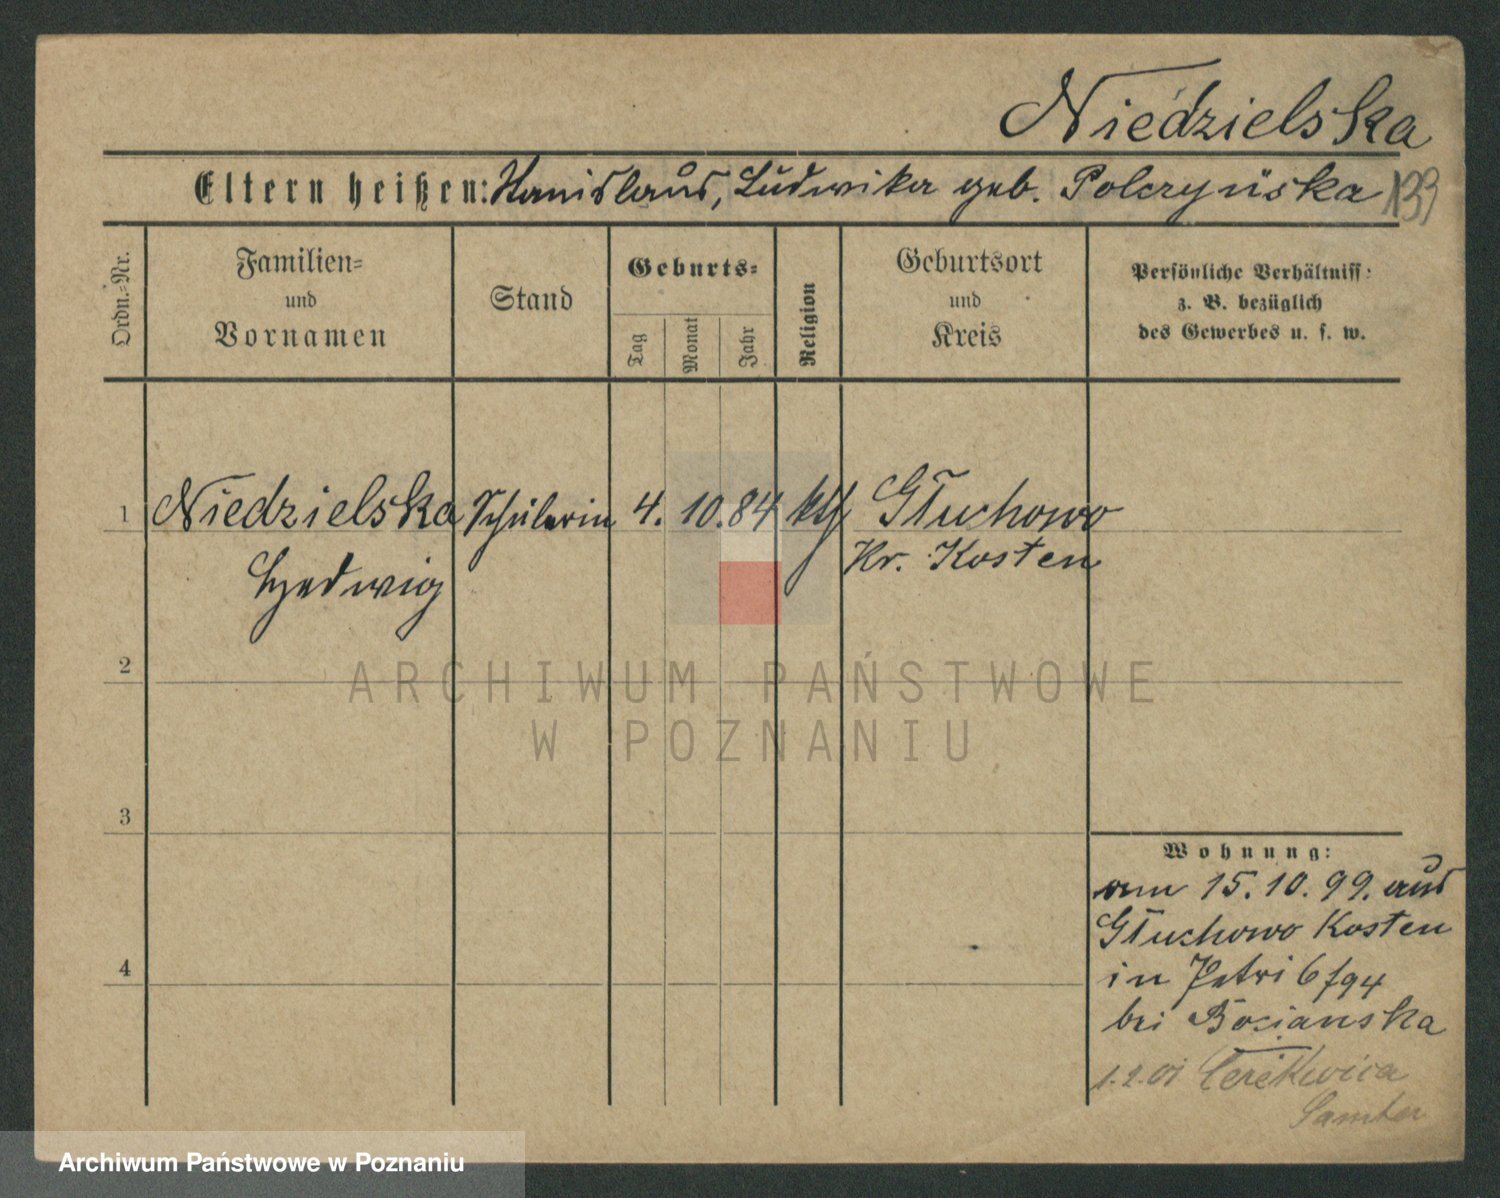 Niedzielska
Eltern heißen: Stanislaus, Ludwika geb. Polczyńska 133
Ordn.-Nr.
Familien-
und
Vornamen
Stand
Geburts-
Tag
Monat
Jahr
Religion
Geburtsort
und
Kreis
Persönliche Verhältniss:
z. B. bezüglich
des Gewerbes u. s. w.
1 Niedzielska Schülerin 4. 10. 84 kth Głuchowo
Hedwig Kr. Kosten
2
3
4
Wohnung:
am 15. 10. 99. aus
Głuchowo Kosten
in Petri 6/94
bei Bocianska
1.2.01 Cerekwica
Samter
ARCHIWUM PAŃSTWOWE
W POZNANIU
Archiwum Państwowe w Poznaniu